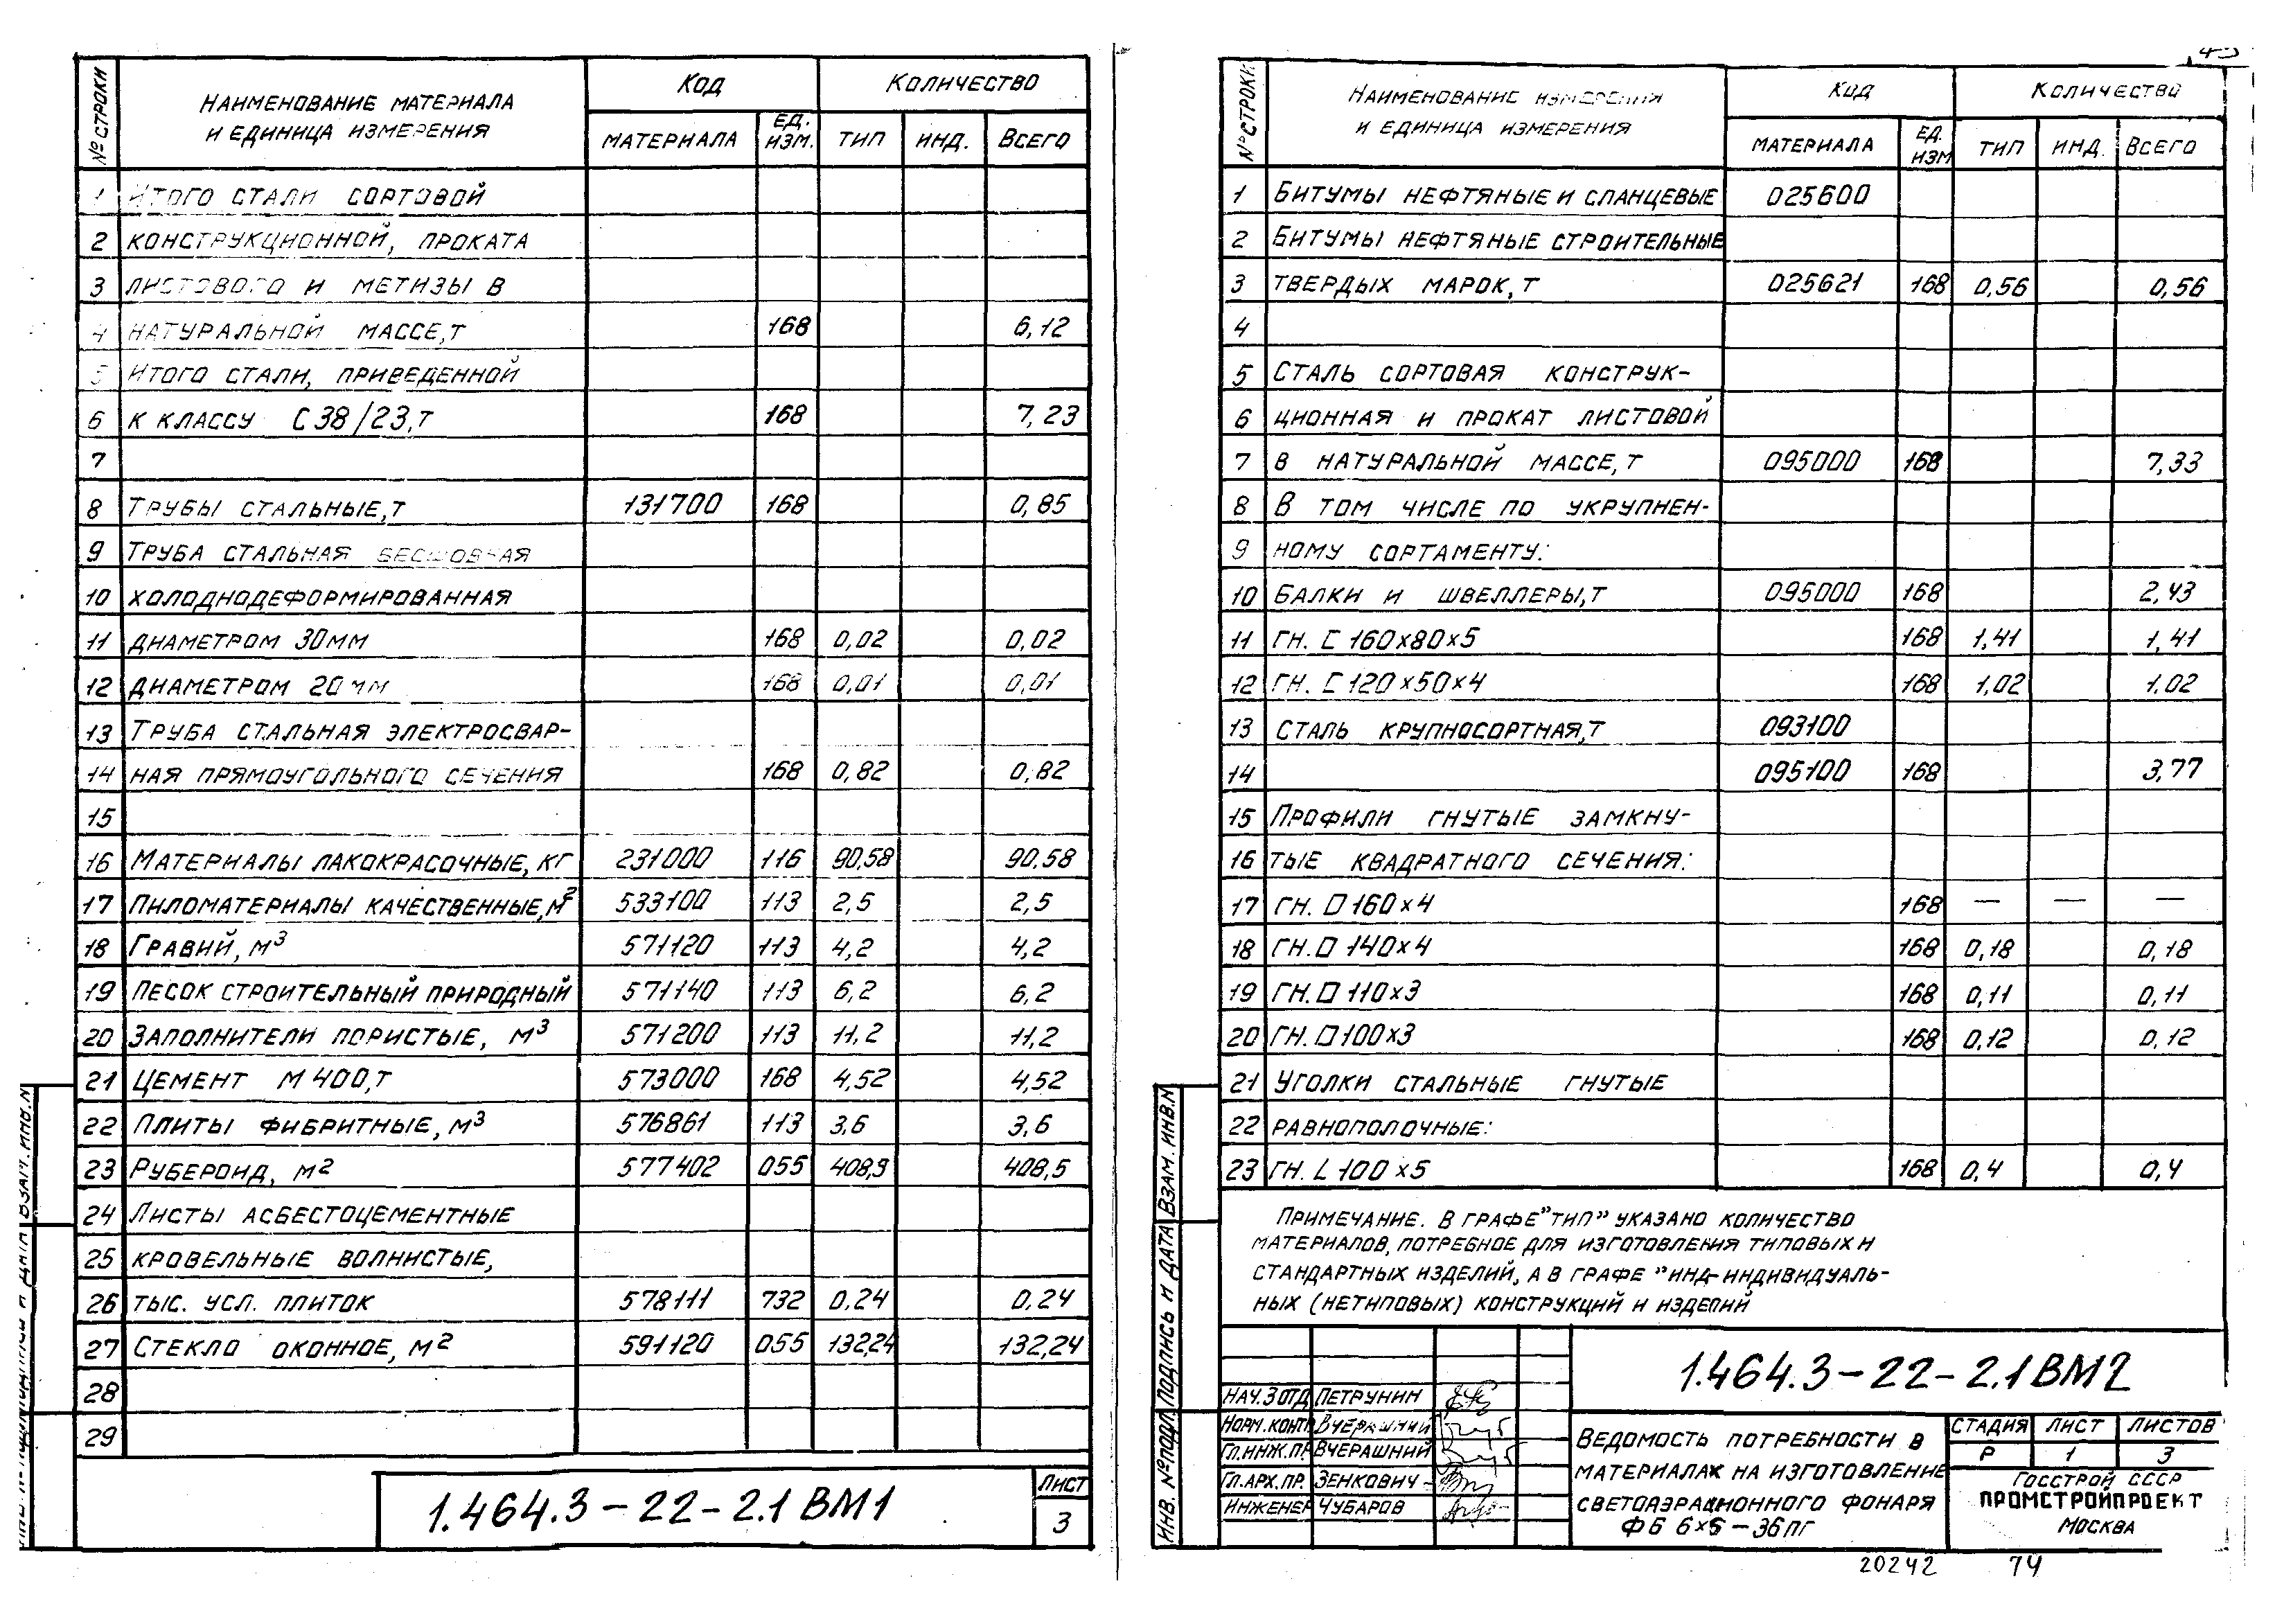 № СТРОКИ | НАИМЕНОВАНИЕ МАТЕРИАЛА И ЕДИНИЦА ИЗМЕРЕНИЯ | КОД | КОЛИЧЕСТВО
МАТЕРИАЛА | ЕД. ИЗМ. | ТИП | ИНД. | ВСЕГО
1 ИТОГО СТАЛИ СОРТОВОЙ
2 КОНСТРУКЦИОННОЙ, ПРОКАТА
3 ЛИСТОВОГО И МЕТИЗЫ В
4 НАТУРАЛЬНОЙ МАССЕ, Т 168 6,12
5 ИТОГО СТАЛИ, ПРИВЕДЕННОЙ
6 К КЛАССУ С 38/23, Т 168 7,23
7
8 ТРУБЫ СТАЛЬНЫЕ, Т 131700 168 0,85
9 ТРУБА СТАЛЬНАЯ БЕСШОВНАЯ
10 ХОЛОДНОДЕФОРМИРОВАННАЯ
11 ДИАМЕТРОМ 30 ММ 168 0,02 0,02
12 ДИАМЕТРОМ 20 ММ 168 0,01 0,01
13 ТРУБА СТАЛЬНАЯ ЭЛЕКТРОСВАР-
14 НАЯ ПРЯМОУГОЛЬНОГО СЕЧЕНИЯ 168 0,82 0,82
15
16 МАТЕРИАЛЫ ЛАКОКРАСОЧНЫЕ, КГ 231000 116 90,58 90.58
17 ПИЛОМАТЕРИАЛЫ КАЧЕСТВЕННЫЕ, М² 533100 113 2,5 2,5
18 ГРАВИЙ, М³ 571120 113 4,2 4,2
19 ПЕСОК СТРОИТЕЛЬНЫЙ ПРИРОДНЫЙ 571140 113 6,2 6,2
20 ЗАПОЛНИТЕЛИ ПОРИСТЫЕ, М³ 571200 113 11,2 11,2
21 ЦЕМЕНТ М 400, Т 573000 168 4,52 4,52
22 ПЛИТЫ ФИБРИТНЫЕ, М³ 576861 113 3,6 3,6
23 РУБЕРОИД, М² 577402 055 408,5
24 ЛИСТЫ АСБЕСТОЦЕМЕНТНЫЕ
25 КРОВЕЛЬНЫЕ ВОЛНИСТЫЕ,
26 ТЫС. УСЛ. ПЛИТОК 578111 732 0.24 0.24
27 СТЕКЛО ОКОННОЕ, М² 591120 055 132,24 132,24
28
29
1.464.3-22-2.1 ВМ1
ЛИСТ
3
ВЗАМ. ИНВ. N
№ СТРОКИ | НАИМЕНОВАНИЕ ИЗМЕРЕНИЯ И ЕДИНИЦА ИЗМЕРЕНИЯ | КОД | КОЛИЧЕСТВО
МАТЕРИАЛА | ЕД. ИЗМ | ТИП | ИНД. | ВСЕГО
1 БИТУМЫ НЕФТЯНЫЕ И СЛАНЦЕВЫЕ 025600
2 БИТУМЫ НЕФТЯНЫЕ СТРОИТЕЛЬНЫЕ
3 ТВЕРДЫХ МАРОК, Т 025621 168 0,56 0,56
4
5 СТАЛЬ СОРТОВАЯ КОНСТРУК-
6 ЦИОННАЯ И ПРОКАТ ЛИСТОВОЙ
7 В НАТУРАЛЬНОЙ МАССЕ, Т 095000 168 7,33
8 В ТОМ ЧИСЛЕ ПО УКРУПНЕН-
9 НОМУ СОРТАМЕНТУ:
10 БАЛКИ И ШВЕЛЛЕРЫ, Т 095000 168 2,43
11 ГН. [ 160×80×5 168 1,41 1,41
12 ГН. [ 120×50×4 168 1,02 1.02
13 СТАЛЬ КРУПНОСОРТНАЯ, Т 093100
14 095100 168 3,77
15 ПРОФИЛИ ГНУТЫЕ ЗАМКНУ-
16 ТЫЕ КВАДРАТНОГО СЕЧЕНИЯ:
17 ГН. □ 160×4 168 — — —
18 ГН. □ 140×4 168 0,18 0,18
19 ГН. □ 110×3 168 0,11 0,11
20 ГН. □ 100×3 168 0,12 0,12
21 УГОЛКИ СТАЛЬНЫЕ ГНУТЫЕ
22 РАВНОПОЛОЧНЫЕ:
23 ГН. L 100×5 168 0,4 0,4
ПРИМЕЧАНИЕ. В ГРАФЕ "ТИП" УКАЗАНО КОЛИЧЕСТВО
МАТЕРИАЛОВ, ПОТРЕБНОЕ ДЛЯ ИЗГОТОВЛЕНИЯ ТИПОВЫХ И
СТАНДАРТНЫХ ИЗДЕЛИЙ, А В ГРАФЕ "ИНД-ИНДИВИДУАЛЬ-
НЫХ (НЕТИПОВЫХ) КОНСТРУКЦИЙ И ИЗДЕЛИЙ
1.464.3-22-2.1 ВМ2
НАЧ. 3 ОТД ПЕТРУНИН
НОРМ. КОНТР. ВЧЕРАШНИЙ
ГЛ. ИНЖ. ПР. ВЧЕРАШНИЙ
ГЛ. АРХ. ПР. ЗЕНКОВИЧ
ИНЖЕНЕР ЧУБАРОВ
ВЕДОМОСТЬ ПОТРЕБНОСТИ В
МАТЕРИАЛАХ НА ИЗГОТОВЛЕНИЕ
СВЕТОАЭРАЦИОННОГО ФОНАРЯ
ФБ 6×6-36ПГ
СТАДИЯ ЛИСТ ЛИСТОВ
Р 1 3
ГОССТРОЙ СССР
ПРОМСТРОЙПРОЕКТ
МОСКВА
ИНВ. № ПОДЛ. ПОДПИСЬ И ДАТА ВЗАМ. ИНВ. N
20242 74